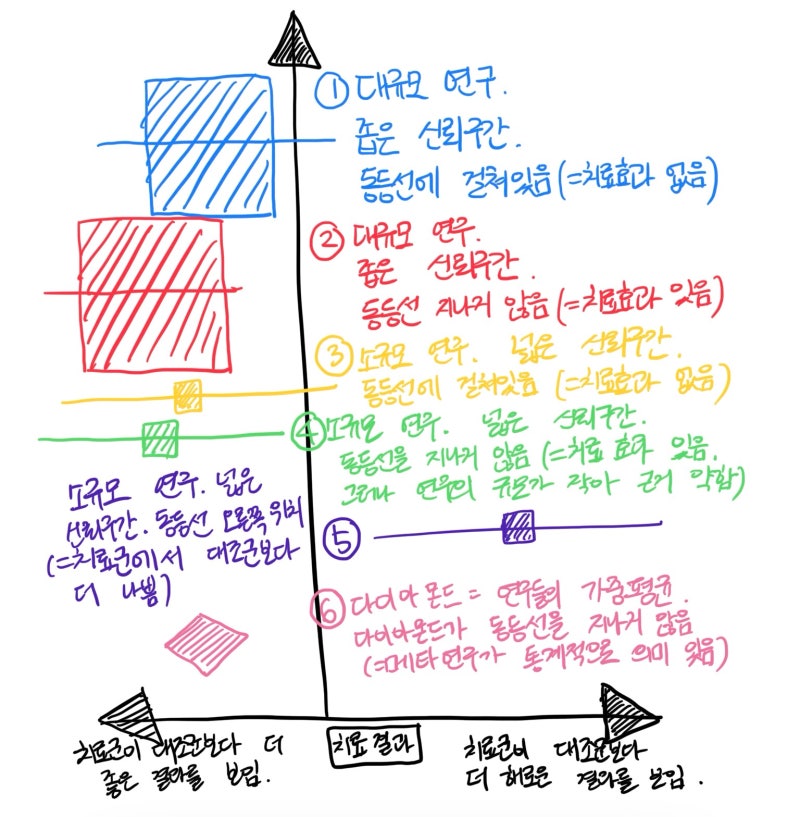 ① 대규모 연구.
좁은 신뢰구간.
동등선에 걸쳐있음 (=치료효과 없음)
② 대규모 연구.
좁은 신뢰구간.
동등선 지나지 않음 (=치료효과 있음)
③ 소규모 연구. 넓은 신뢰구간.
동등선에 걸쳐있음 (=치료효과 없음)
④ 소규모 연구. 넓은 신뢰구간.
동등선을 지나지 않음 (=치료 효과 있음.
그러나 연구의 규모가 작아 근거 약함)
소규모 연구. 넓은
신뢰구간. 동등선 오른쪽 위치
(=치료군에서 대조군보다
더 나쁨)
⑤
⑥ 다이아몬드 = 연구들의 가중평균.
다이아몬드가 동등선을 지나지 않음
(=메타연구가 통계적으로 의미 있음)
치료군이 대조군보다 더
좋은 결과를 보임.
치료 결과
치료군이 대조군보다
더 해로운 결과를 보임.